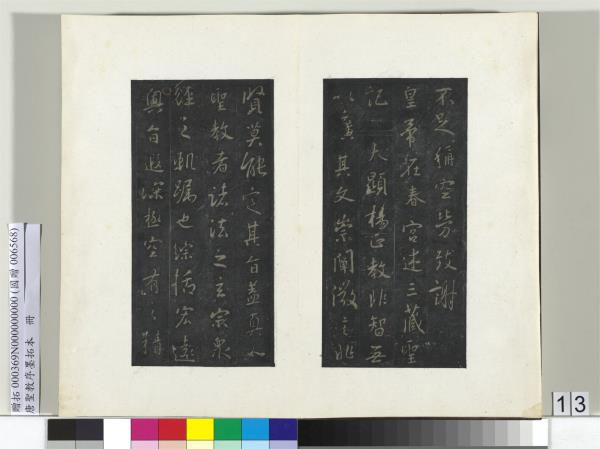 不足稱空勞致謝
皇帝在春宮述三藏聖
記 夫顯揚正教非智無
以廣其文崇闡微言非
賢莫能定其旨蓋真如
聖教者諸法之玄宗眾
經之軌躅也綜括宏遠
奧旨遐深極空有之精
贈拓 000369N000000000 (國贈 006568)
唐聖教序墨拓本 冊
13